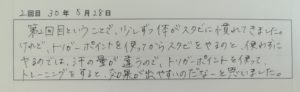 2回目 30年5月28日
第2回目ということで、少しずつ体がスタビに慣れてきました。
けれど、トリガーポイントを使ってからスタビをやるのと、使わずに
やるのでは、汗の量が違うので、トリガーポイントを使って、
トレーニングをすると、効果が出やすいのだなーと思いました。